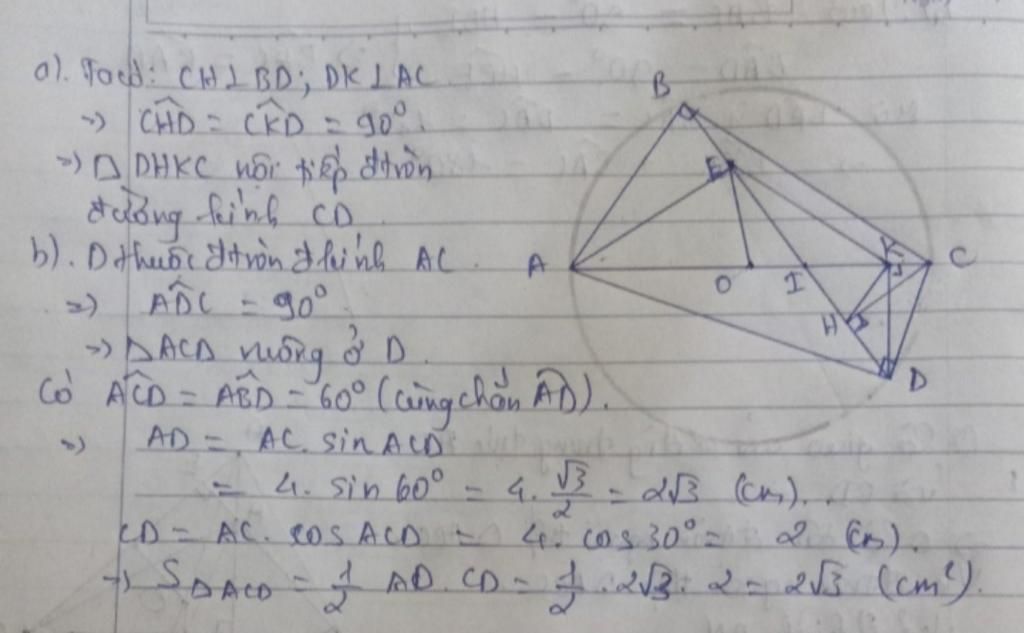 a). Ta có: CH⊥BD; DK⊥AC
=> CHD^ = CKD^ = 90°.
=> □ DHKC nội tiếp đtròn
đường kính CD
b). D thuộc đtròn đkính AC.
=> ADC^ = 90°
=> ΔACD vuông ở D.
Có ACD^ = ABD^ = 60° (cùng chắn AD⌒).
=> AD = AC. sin ACD
= 4. sin 60° = 4. √3/2 = 2√3 (cm).
CD = AC. cos ACD = 4. cos 30° = 2 (cm).
=> S ΔACD = 1/2 AD. CD = 1/2 . 2√3. 2 = 2√3 (cm²).
B
E
A
O
I
K
C
H
D